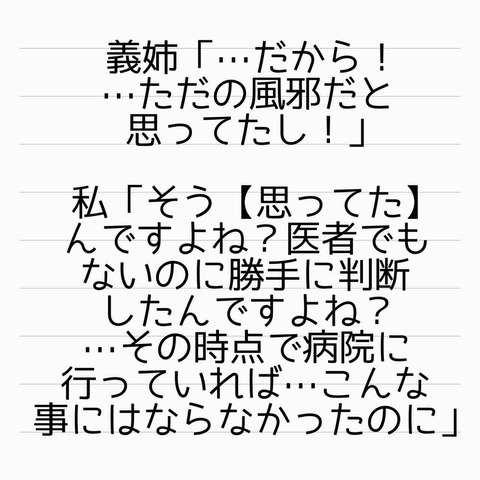 義姉「…だから！
…ただの風邪だと
思ってたし！」
私「そう【思ってた】
んですよね？医者でも
ないのに勝手に判断
したんですよね？
…その時点で病院に
行っていれば…こんな
事にはならなかったのに」